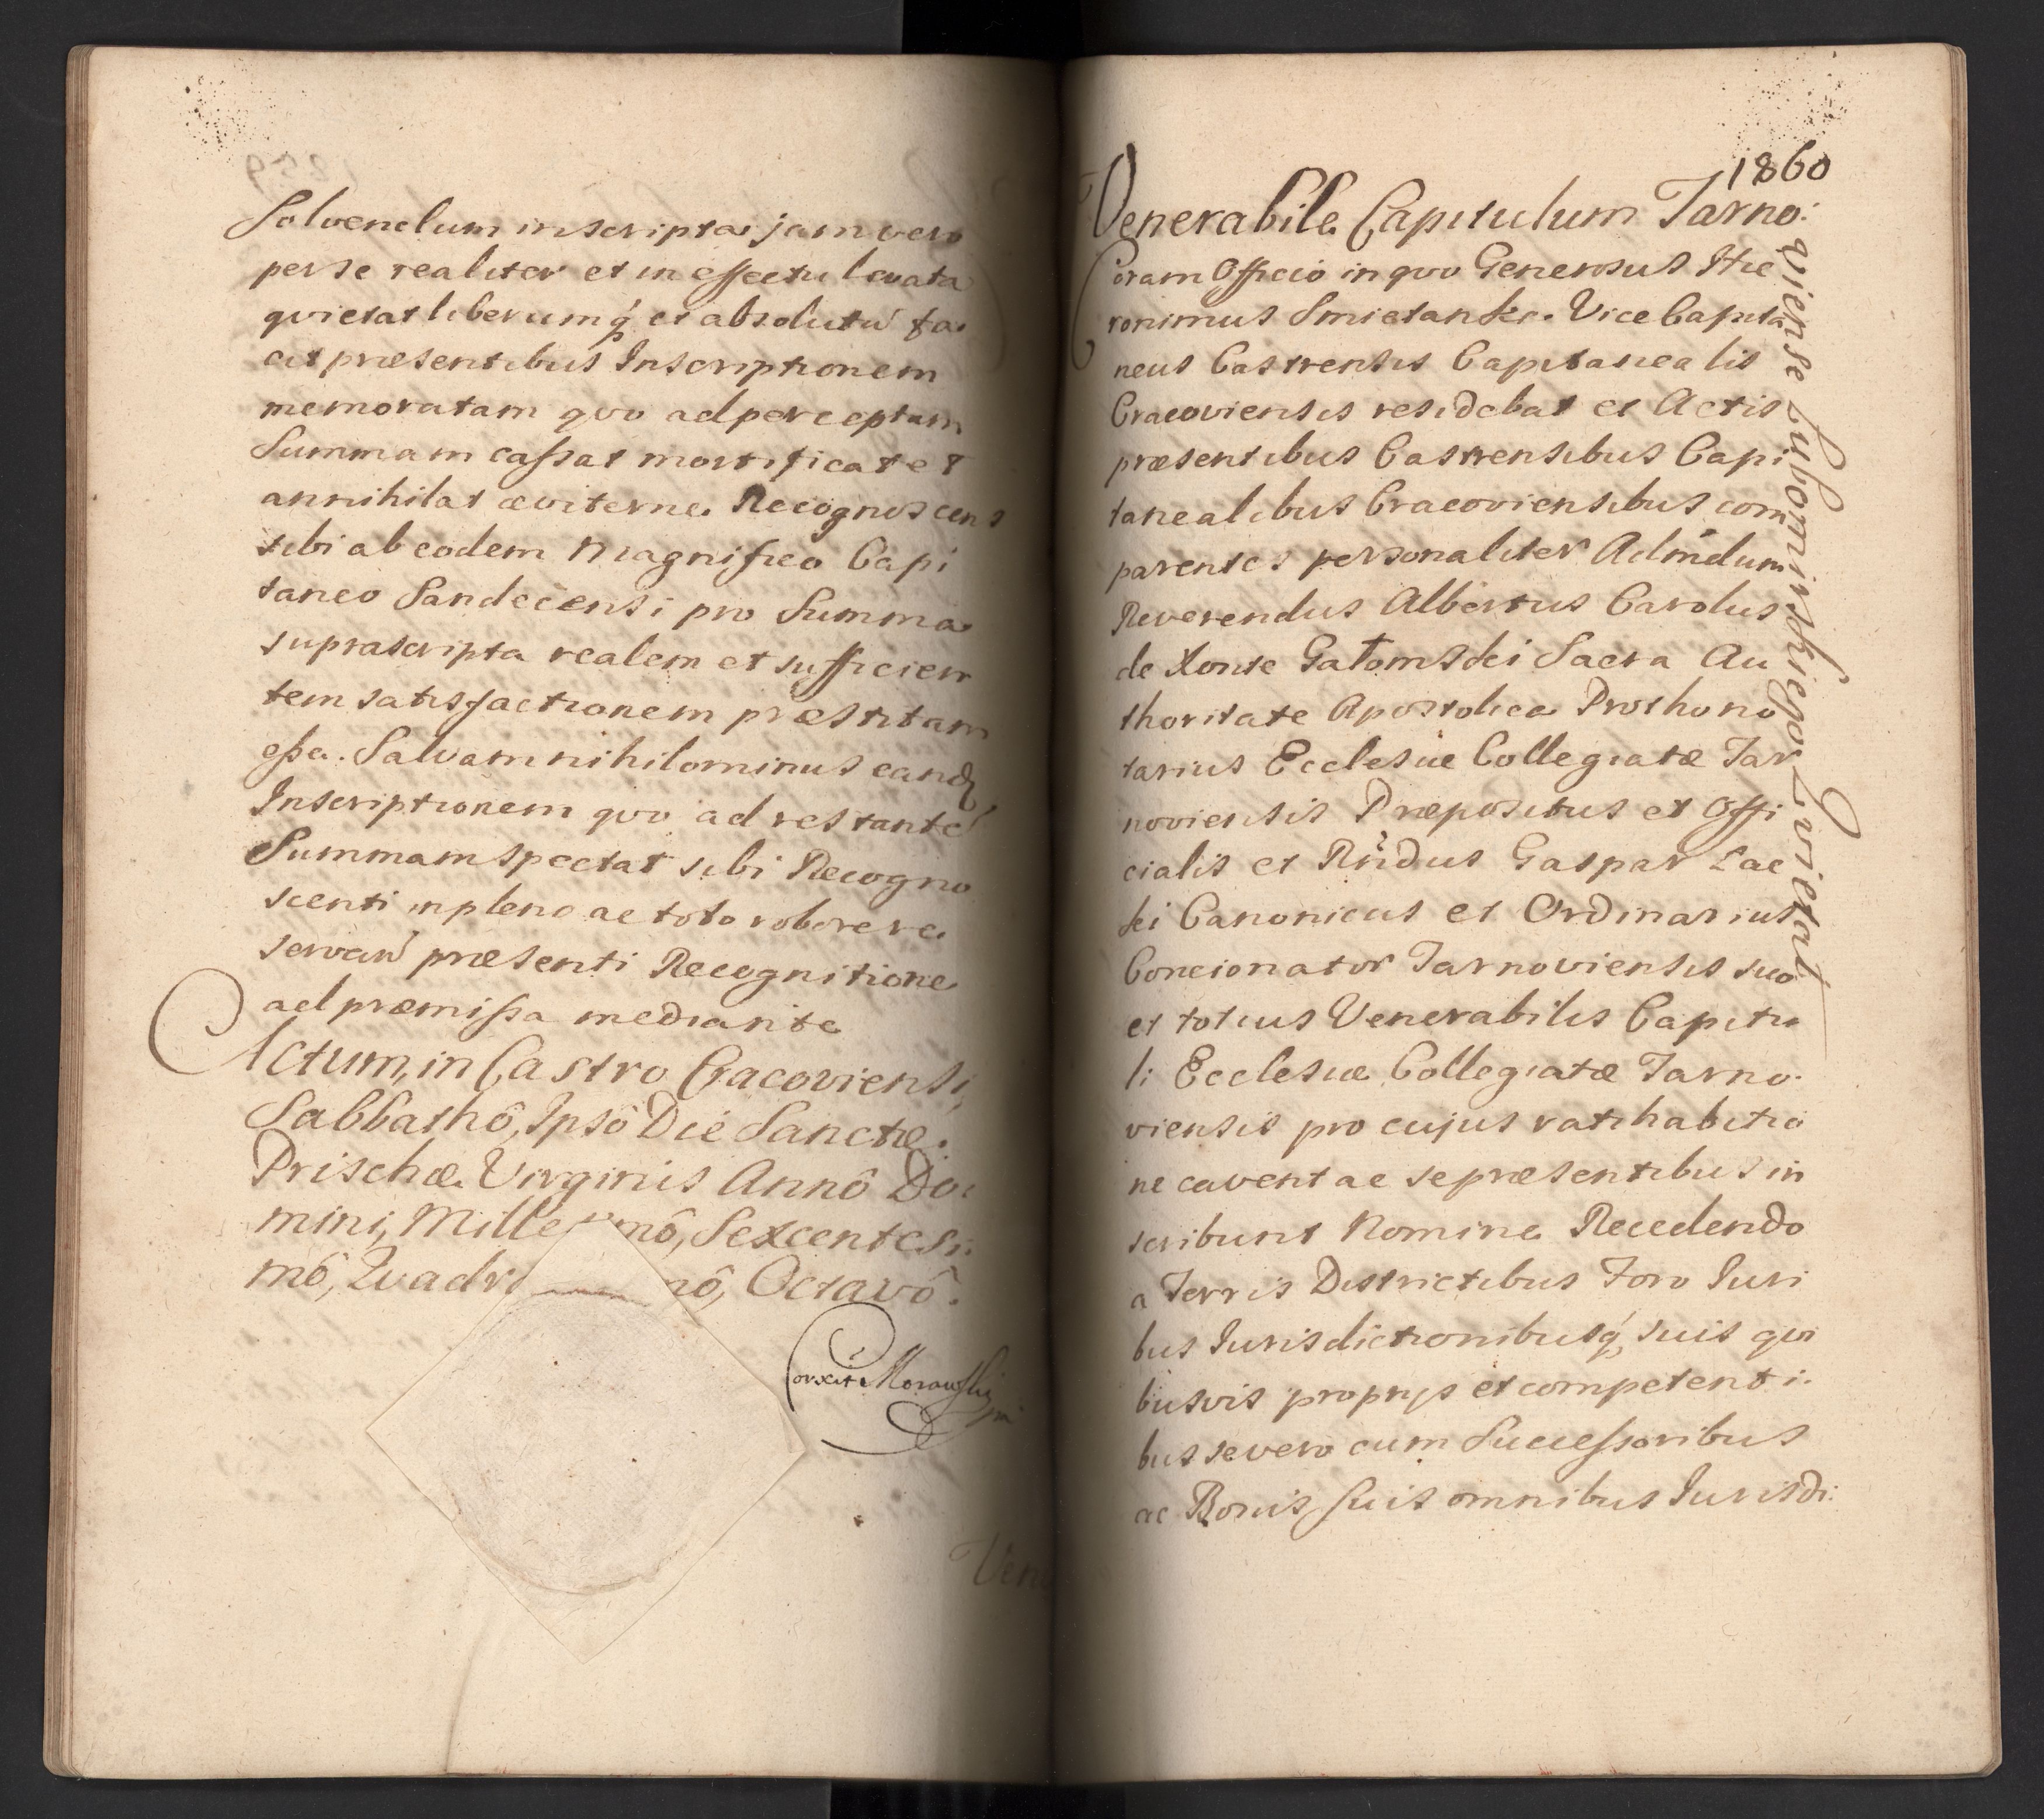 Solvendum inscripta jam vero
per se realiter et in effectu levata
quietat liberumq́ et absolutū fa
cit præsentibus Inscriptionem
memoratam quo ad perceptam
Summam cassat mortificat et
annihilat æviterne. Recognoscens
sibi ab eodem Magnifico Capi
taneo Sandecensi pro Summa
suprascripta realem et sufficien
tem satisfactionem præstitam
esse. Salvam nihilominus eand
Inscriptionem quo ad restantē
Summam spectat sibi Recogno
scenti in pleno ac toto robore re
servań præsenti Recognitione
ad præmissa mediante
Actum, in Castro Cracoviensi,
Sabbathô, Ipsô Die Sanctæ.
Prischæ. Virginis Annô Do:
mini, Mille mô, Sexcentesi:
mô, Quadr nô, Octavô.
Corxit Morawski
Vene
1860
Venerabile Capitulum Tarno:
viense Lubomirskiego Quietat
Coram Officio in quo Generosus Hie
ronimus Smietanka. Vice Capita
neus Castrensis Capitanealis
Cracoviensis residebat et Actis
præsentibus Castrensibus Capi
tanealibus Cracoviensibus com
parentes personaliter Admdum
Reverendus Albertus Carolus
de Xonse Gatomski Sacra Au
thoritate Apostolica Prothono
tarius Ecclesiæ Collegiatæ Tar
noviensis Præpositus et Offi
cialis et Rńdus Gaspar Lac
ki Canonicus et Ordinarius
Concionator Tarnoviensis suo
et totius Venerabilis Capitu
li Ecclesiæ Collegiatæ Tarno.
viensis pro cujus ratihabitio
ne cavent ac se præsentibus in
scribunt Nomine Recedendo
a Terris Districtibus Foro Juri
bus Jurisdictionibusq́, suis qui
busvis proprys et competenti.
bus se vero cum Successoribus
ac Bonis suis omnibus Jurisdi: